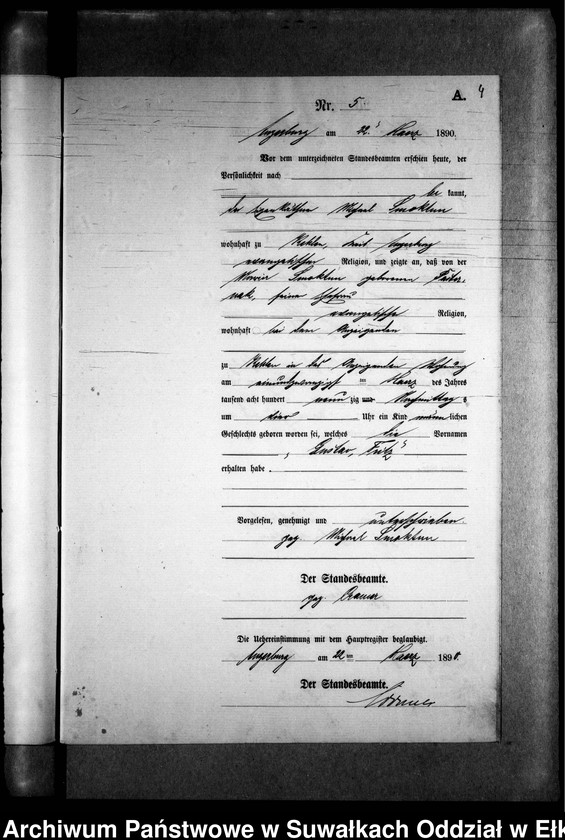 A. 4
Nr. 5
Angerburg am 22. März 1890.
Vor dem unterzeichneten Standesbeamten erschien heute, der
Persönlichkeit nach
be kannt,
der Michael Smoktun
wohnhaft zu Kehlen, Kreis Angerburg
evangelischer Religion, und zeigte an, daß von der
Maria Smoktun geborenen
seiner Ehefrau
evangelischer Religion,
wohnhaft bei dem Anzeigenden
zu Kehlen in des Anzeigenden Wohnung
am einundzwanzigsten März des Jahres
tausend acht hundert neun zig Vormittags
um vier Uhr ein Kind männlichen
Geschlechts geboren worden sei, welches die Vornamen
Gustav, Fritz
erhalten habe.
Vorgelesen, genehmigt und unterschrieben
gez. Michael Smoktun
Der Standesbeamte.
gez.
Die Uebereinstimmung mit dem Hauptregister beglaubigt.
Angerburg am 22ten März 1890.
Der Standesbeamte.
Archiwum Państwowe w Suwałkach Oddział w Ełk